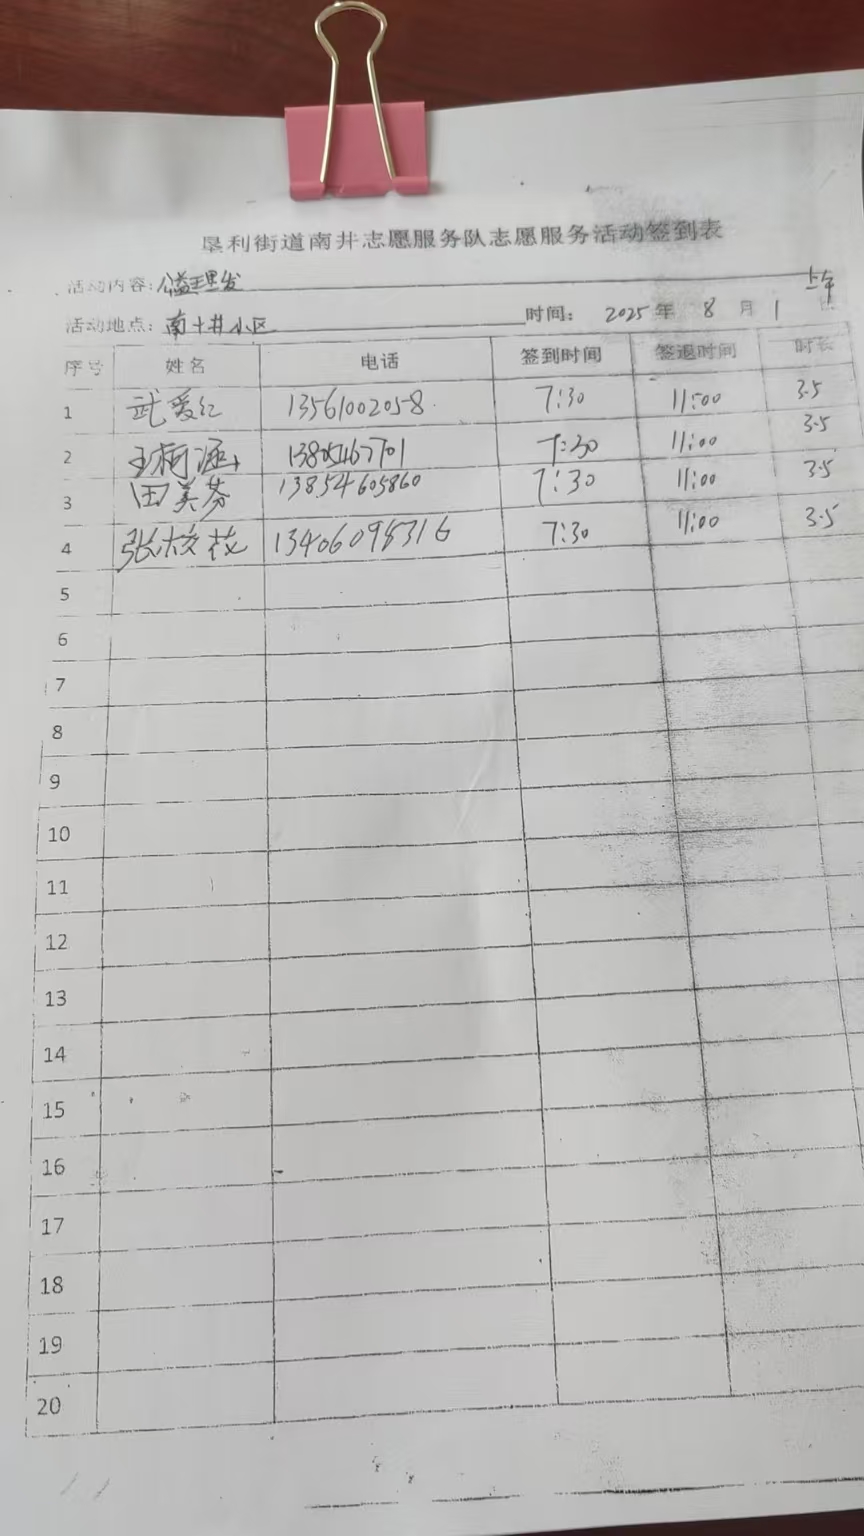 垦利街道南井志愿服务队志愿服务活动签到表
活动内容：公益理发 上午
活动地点：南十井小区 时间： 2025 年 8 月 1 日
序号 姓名 电话 签到时间 签退时间 时长
1 武爱红 13561002058 7:30 11:00 3.5
2 王柯涵 13805467701 7:30 11:00 3.5
3 田美芬 13854605860 7:30 11:00 3.5
4 张校花 13406098316 7:30 11:00 3.5
5
6
7
8
9
10
11
12
13
14
15
16
17
18
19
20